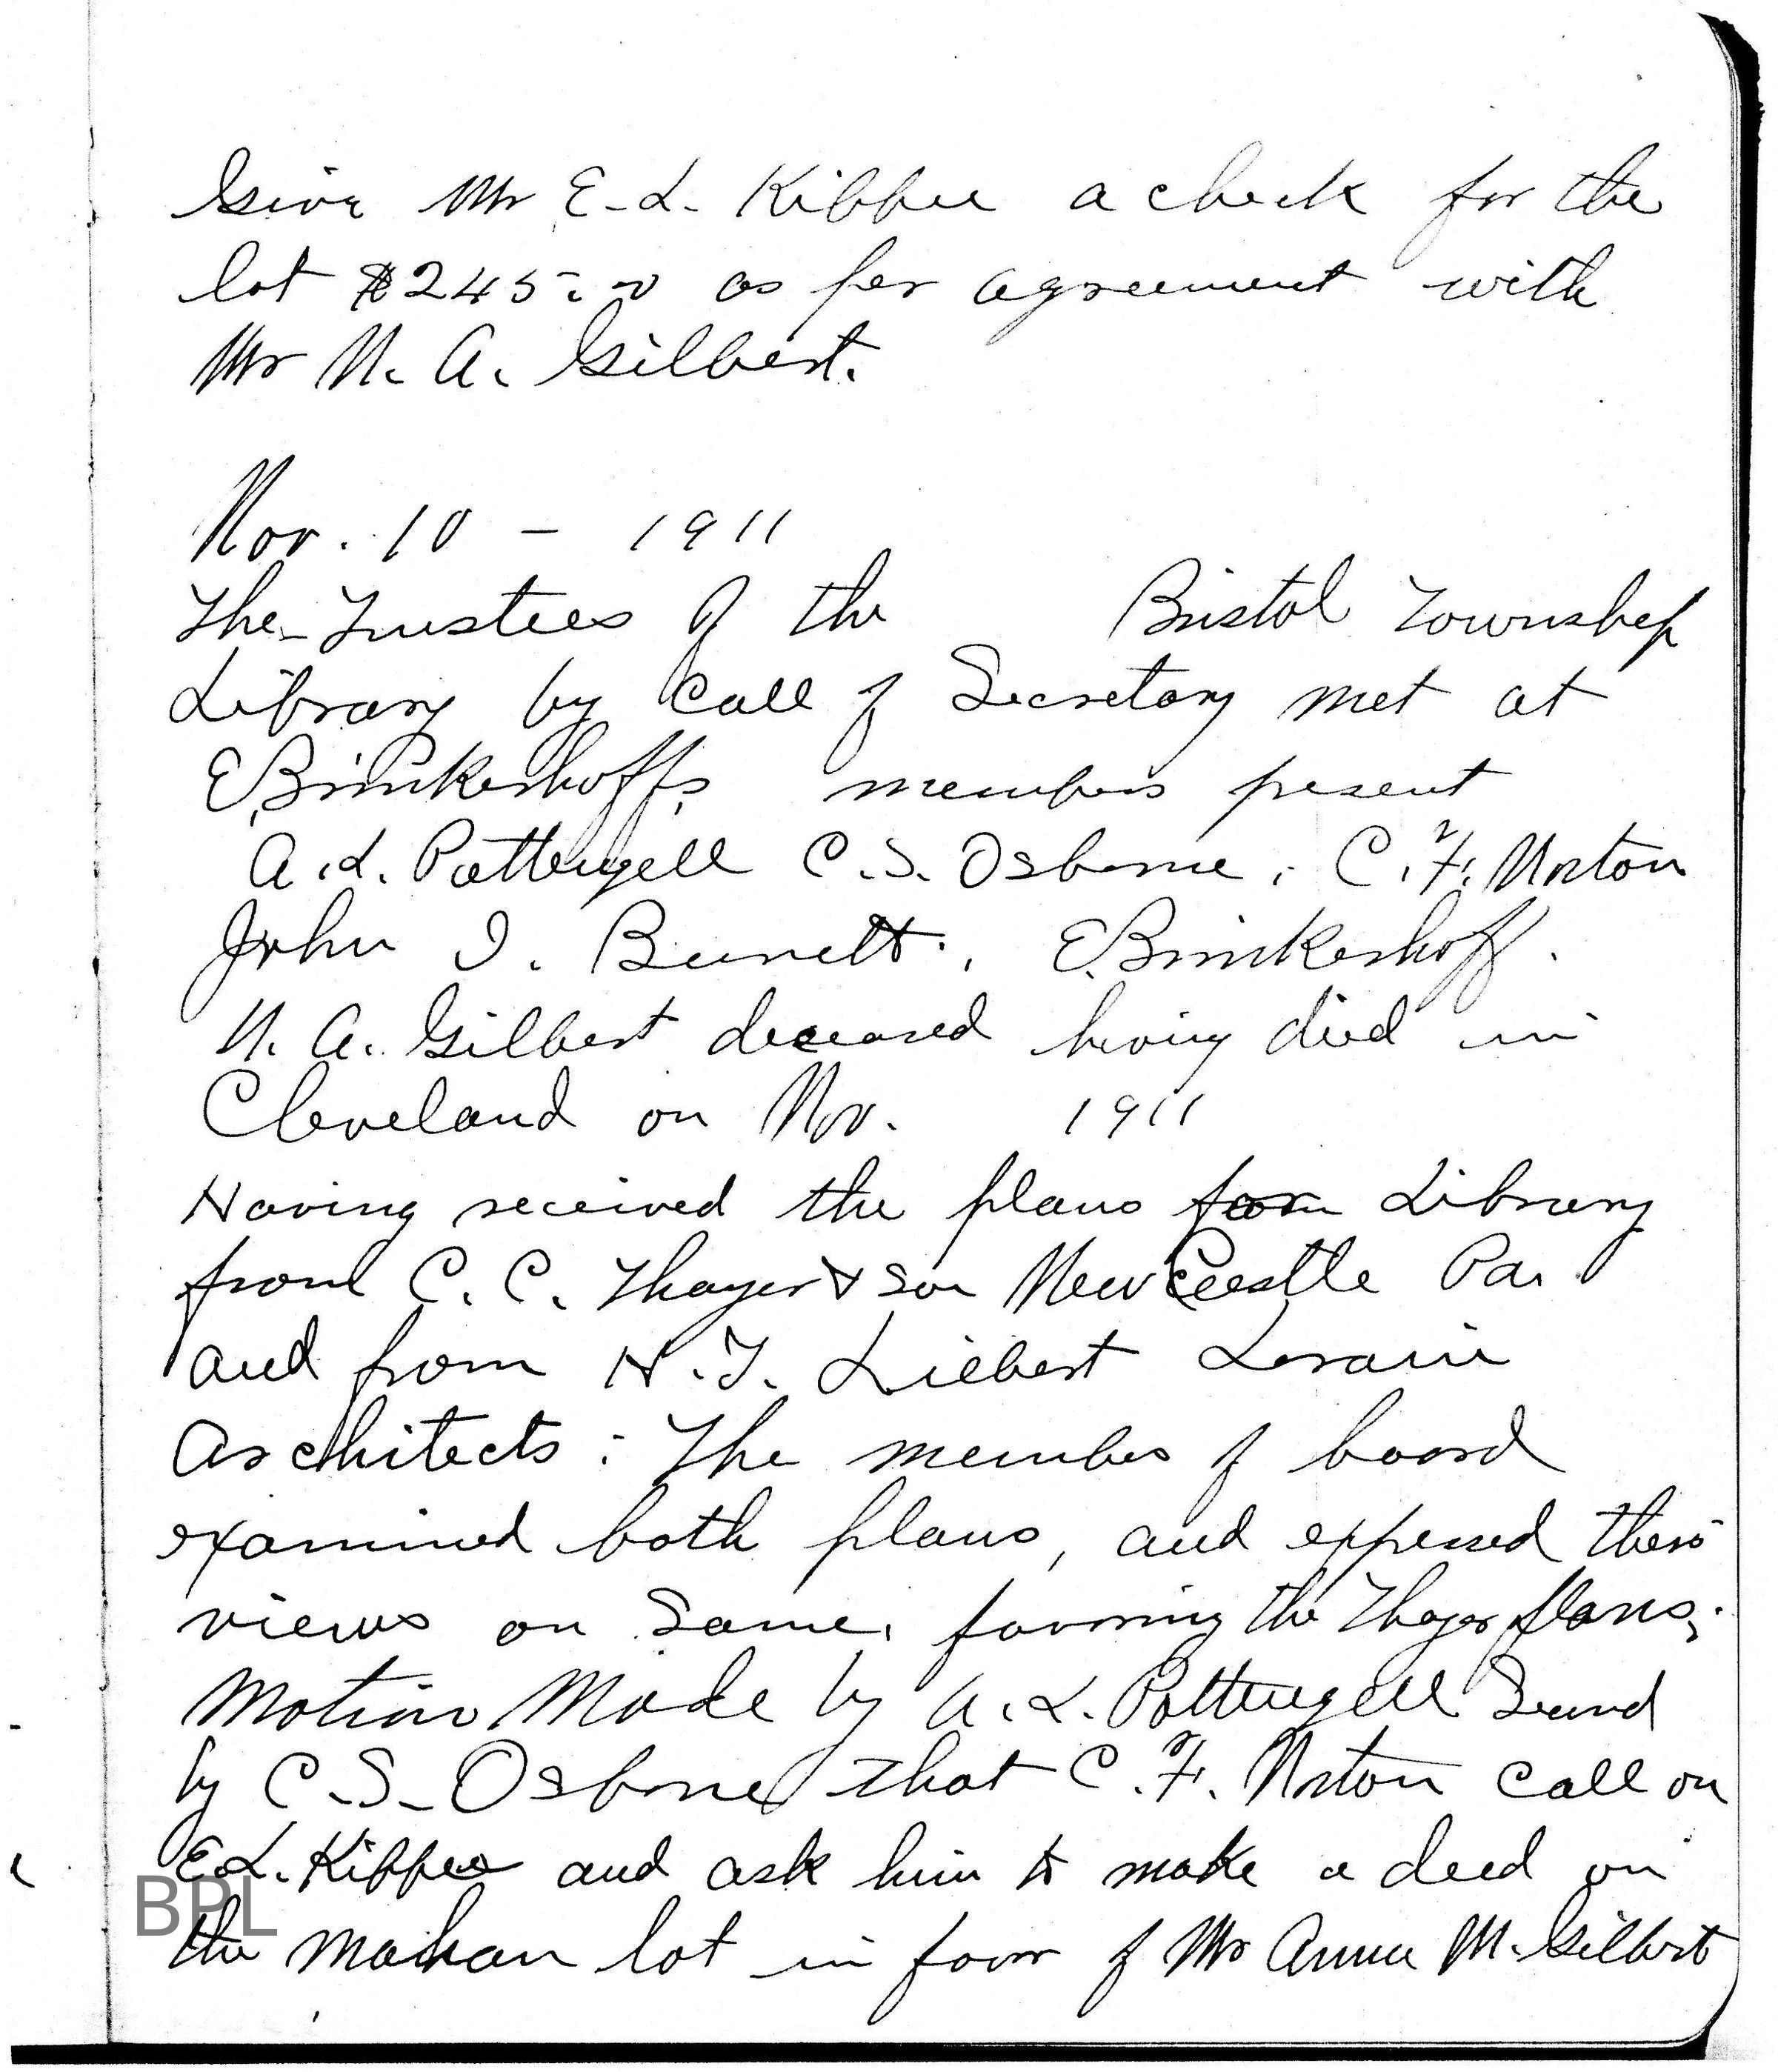 Give Mr E. L. Kibbee a check for the
lot $245.00 as per agreement with
Mr N. A. Gilbert.
Nov. 10 - 1911
The Trustees of the Bristol Township
Library by call of Secretary met at
E. Brinkerhoffs members present
A. L. Pattengell C. S. Osborne, C. F. Norton
John I. Barrett, E. Brinkerhoff.
N. A. Gilbert deceased having died in
Cleveland on Nov. 1911
Having received the plans for Library
from C. C. Thayer & Son New Castle Pa.
and from H. T. Liebert Lorain
Architects : The members of board
examined both plans, and expressed their
views on same, favoring the Thayer plans.
Motion Made by A. L. Pattengell Second
by C. S. Osborne that C. F. Norton call on
E. L. Kibbee and ask him to make a deed on
BPL
the Mahan lot in favor of Mrs Anna M. Gilbert